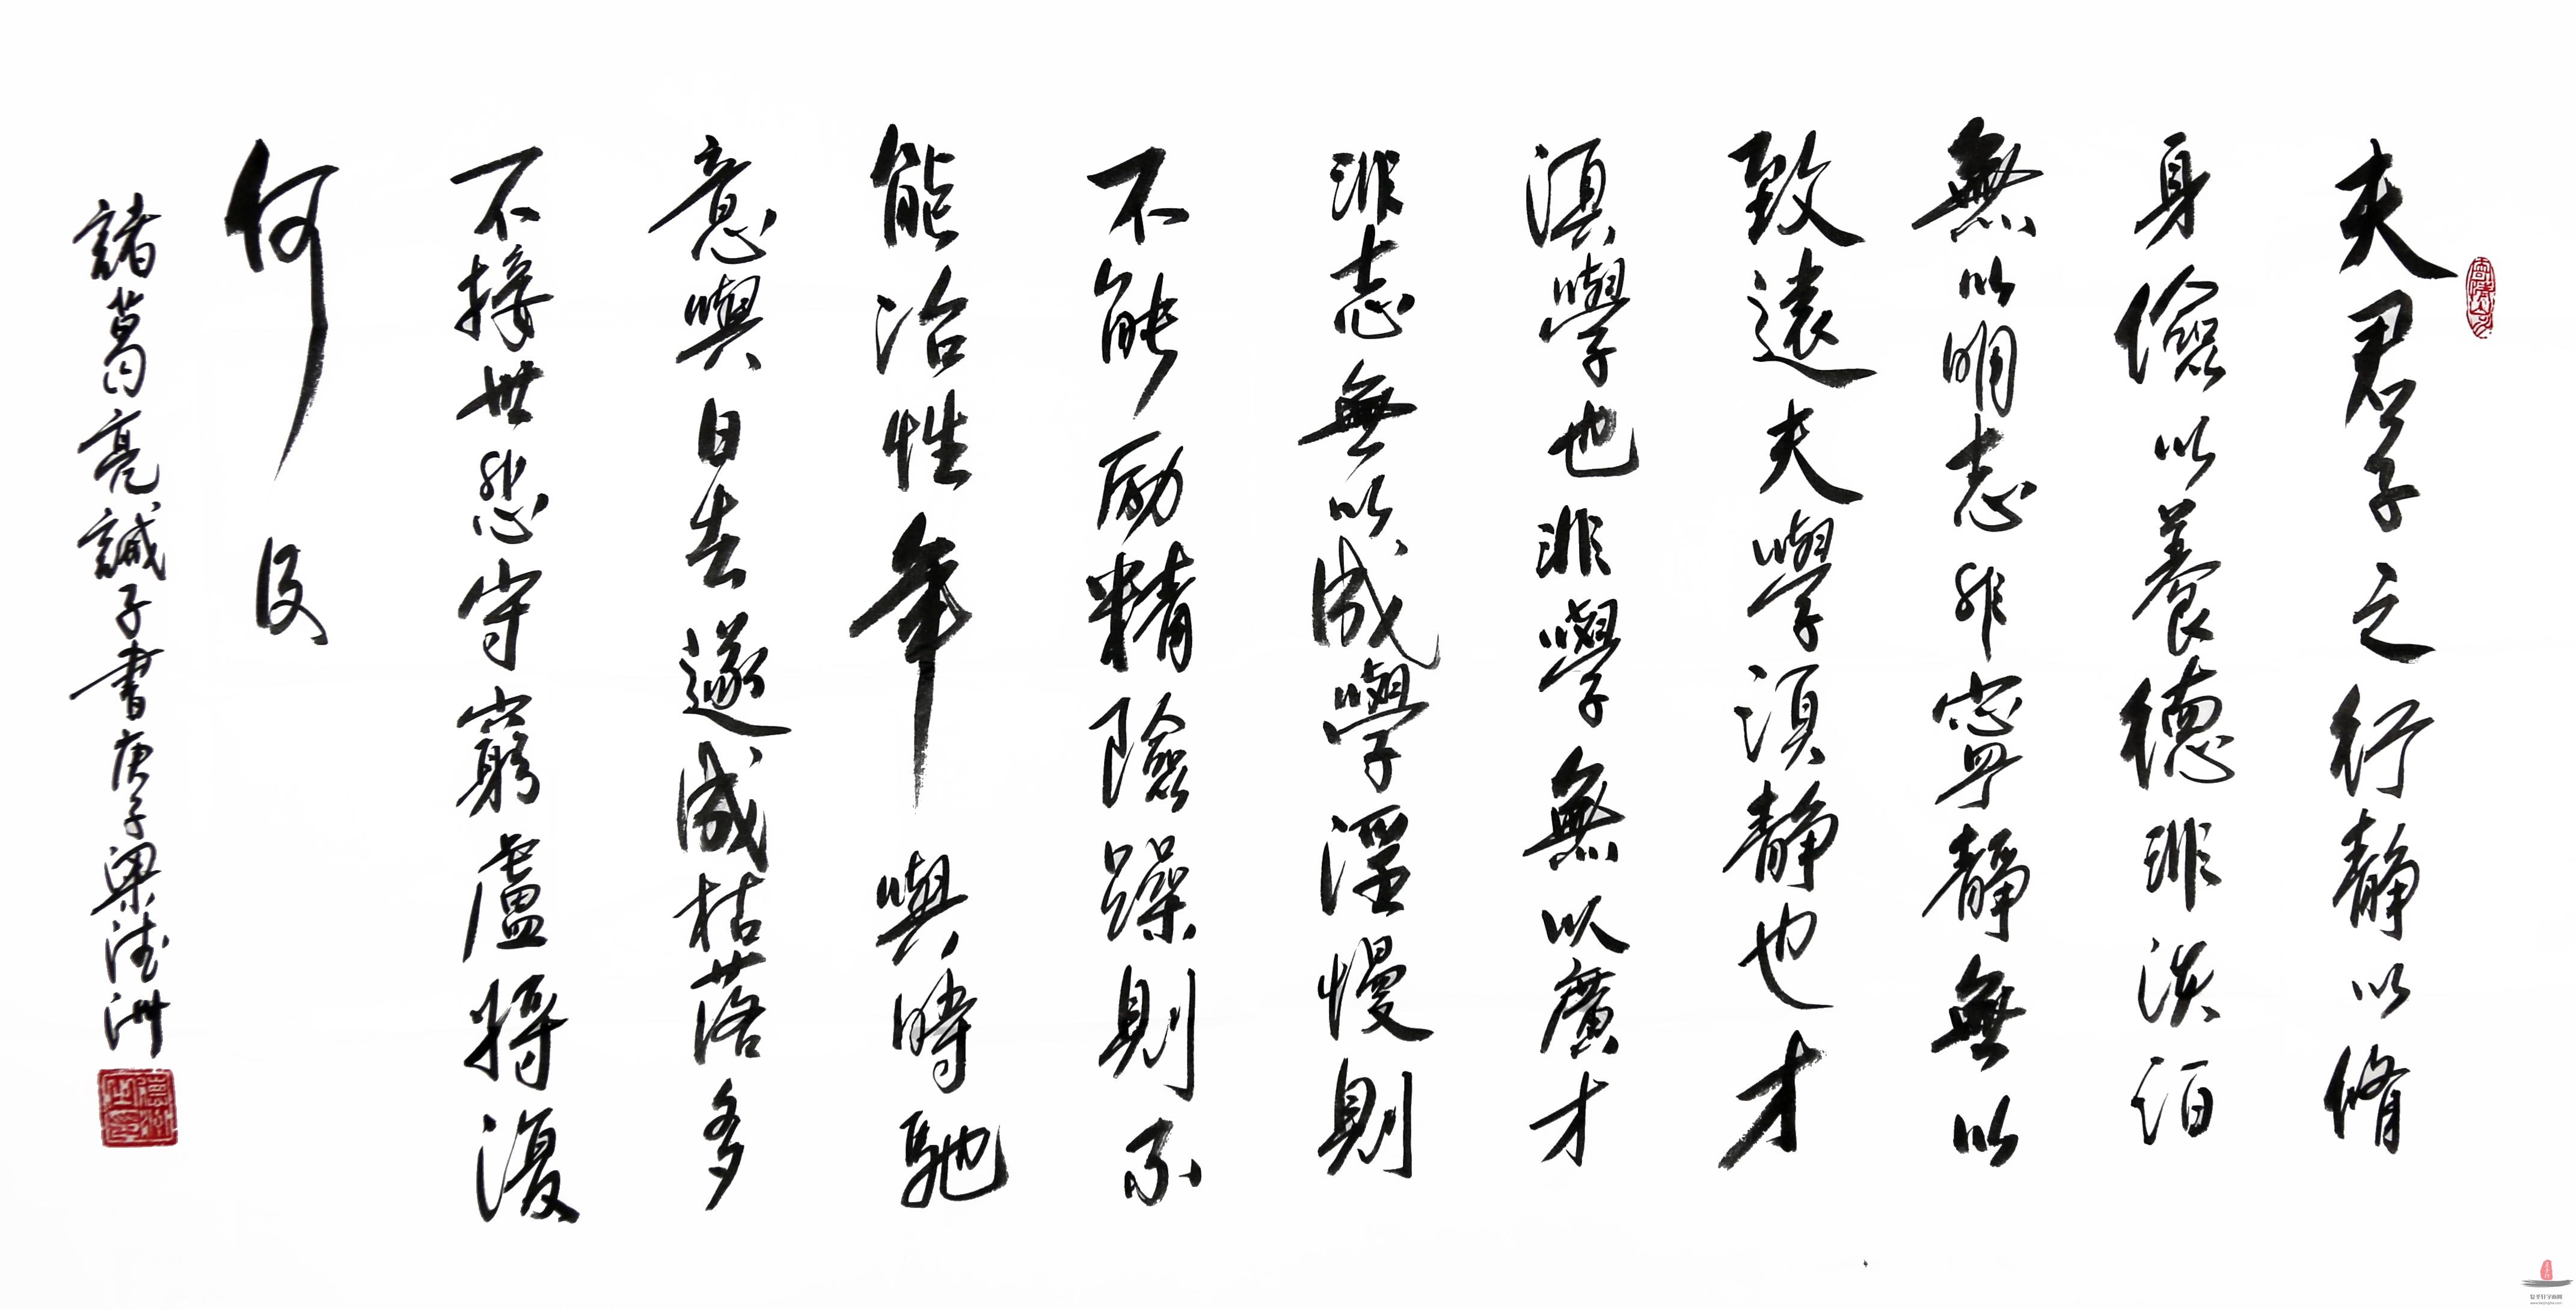 夫君子之行靜以脩
身儉以養德非淡泊
無以明志非寧靜無以
致遠夫學須靜也才
須學也非學無以廣才
非志無以成學淫慢則
不能勵精險躁則不
能治性年與時馳
意與日去遂成枯落多
不接世悲守窮廬將復
何及
諸葛亮誡子書庚子梁德洲